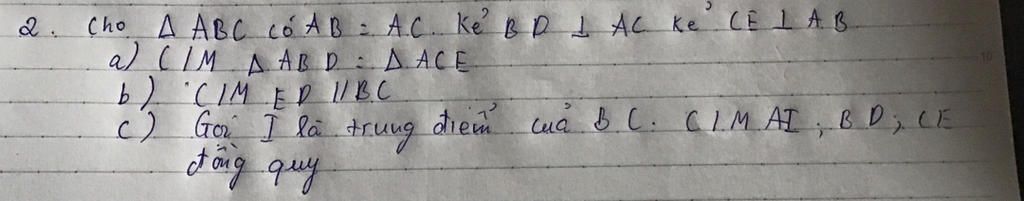 2. Cho Δ ABC có AB = AC. Kẻ BD ⊥ AC Kẻ CE ⊥ AB
a) C/M Δ ABD = Δ ACE
b) C/M ED // BC
c) Gọi I là trung điểm của BC. C/M AI; BD; CE
đồng quy